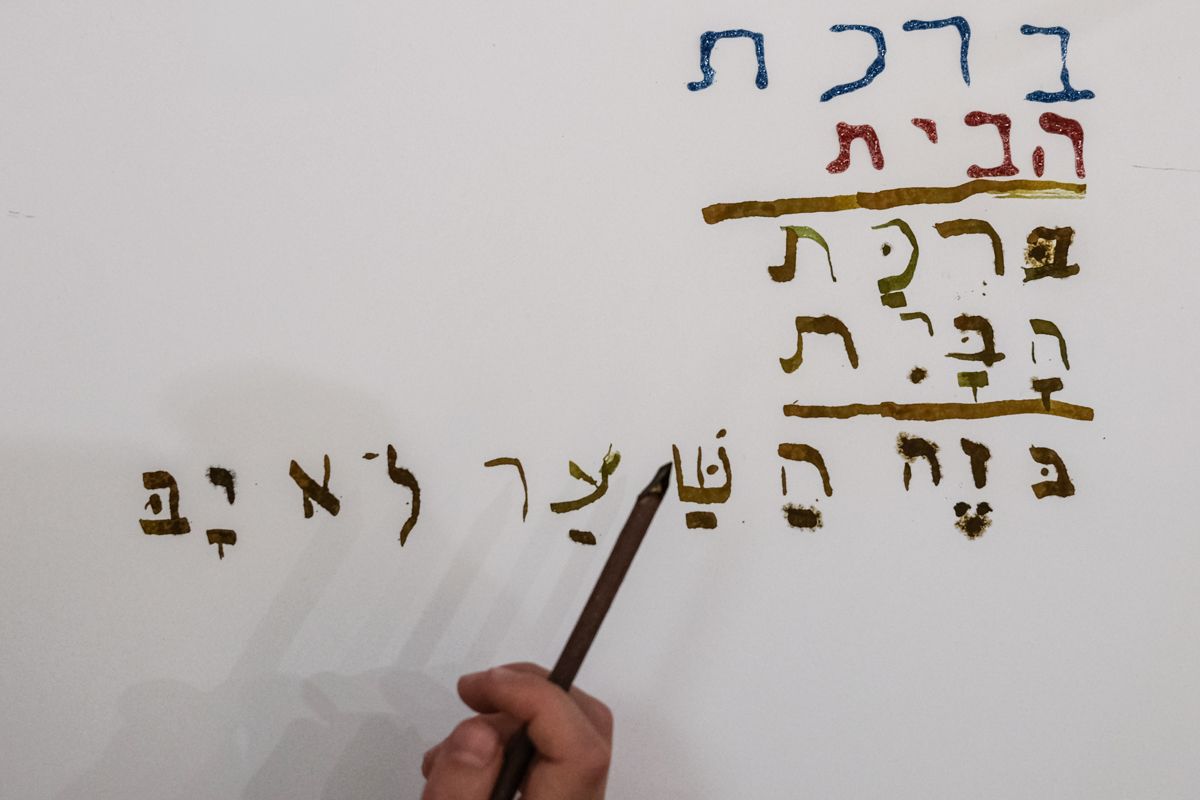 ברכת
הבית
בּרכַּת
הָבָּיִת
בּזֶה הַשַּׁעַר לֹא יָבּ